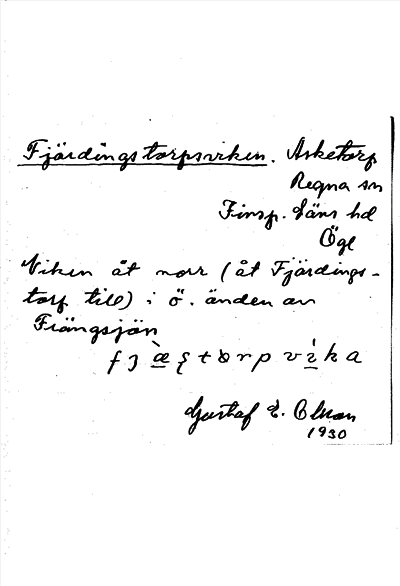 Fjärdingstorpsviken. Asketorp
Regna sn
Finsp. läns hd
Ögl
Viken åt norr (åt Fjärdings-
torp till) i ö. änden av
Frängsjön
Gustaf E. Olson
1930